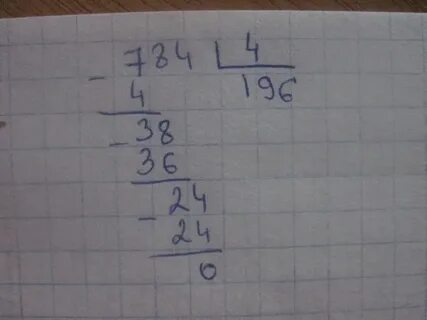 - 784 4
4 196
- 38
36
- 24
24
0